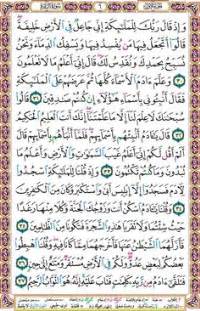 وَإِذْ قَالَ رَبُّكَ لِلْمَلَٰٓئِكَةِ إِنِّى جَاعِلٌ فِى ٱلْأَرْضِ خَلِيفَةً
قَالُوٓا۟ أَتَجْعَلُ فِيهَا مَن يُفْسِدُ فِيهَا وَيَسْفِكُ ٱلدِّمَآءَ وَنَحْنُ
نُسَبِّحُ بِحَمْدِكَ وَنُقَدِّسُ لَكَ قَالَ إِنِّىٓ أَعْلَمُ مَا لَا تَعْلَمُونَ
٣٠ وَعَلَّمَ ءَادَمَ ٱلْأَسْمَآءَ كُلَّهَا ثُمَّ عَرَضَهُمْ عَلَى ٱلْمَلَٰٓئِكَةِ
فَقَالَ أَنۢبِـُٔونِى بِأَسْمَآءِ هَٰٓؤُلَآءِ إِن كُنتُمْ صَٰدِقِينَ ٣١
قَالُوا۟ سُبْحَٰنَكَ لَا عِلْمَ لَنَآ إِلَّا مَا عَلَّمْتَنَآ إِنَّكَ أَنتَ ٱلْعَلِيمُ ٱلْحَكِيمُ
٣٢ قَالَ يَٰٓـَٔادَمُ أَنۢبِئْهُم بِأَسْمَآئِهِمْ فَلَمَّآ أَنۢبَأَهُم بِأَسْمَآئِهِمْ قَالَ
أَلَمْ أَقُل لَّكُمْ إِنِّىٓ أَعْلَمُ غَيْبَ ٱلسَّمَٰوَٰتِ وَٱلْأَرْضِ وَأَعْلَمُ مَا
تُبْدُونَ وَمَا كُنتُمْ تَكْتُمُونَ ٣٣ وَإِذْ قُلْنَا لِلْمَلَٰٓئِكَةِ ٱسْجُدُوا۟ لِـَٔادَمَ
فَسَجَدُوٓا۟ إِلَّآ إِبْلِيسَ أَبَىٰ وَٱسْتَكْبَرَ وَكَانَ مِنَ ٱلْكَٰفِرِينَ
٣٤ وَقُلْنَا يَٰٓـَٔادَمُ ٱسْكُنْ أَنتَ وَزَوْجُكَ ٱلْجَنَّةَ وَكُلَا مِنْهَا رَغَدًا
حَيْثُ شِئْتُمَا وَلَا تَقْرَبَا هَٰذِهِ ٱلشَّجَرَةَ فَتَكُونَا مِنَ ٱلظَّٰلِمِينَ
٣٥ فَأَزَلَّهُمَا ٱلشَّيْطَٰنُ عَنْهَا فَأَخْرَجَهُمَا مِمَّا كَانَا فِيهِ وَقُلْنَا ٱهْبِطُوا۟
بَعْضُكُمْ لِبَعْضٍ عَدُوٌّ وَلَكُمْ فِى ٱلْأَرْضِ مُسْتَقَرٌّ وَمَتَٰعٌ إِلَىٰ حِينٍ
٣٦ فَتَلَقَّىٰٓ ءَادَمُ مِن رَّبِّهِۦ كَلِمَٰتٍ فَتَابَ عَلَيْهِ إِنَّهُۥ هُوَ ٱلتَّوَّابُ ٱلرَّحِيمُ ٣٧